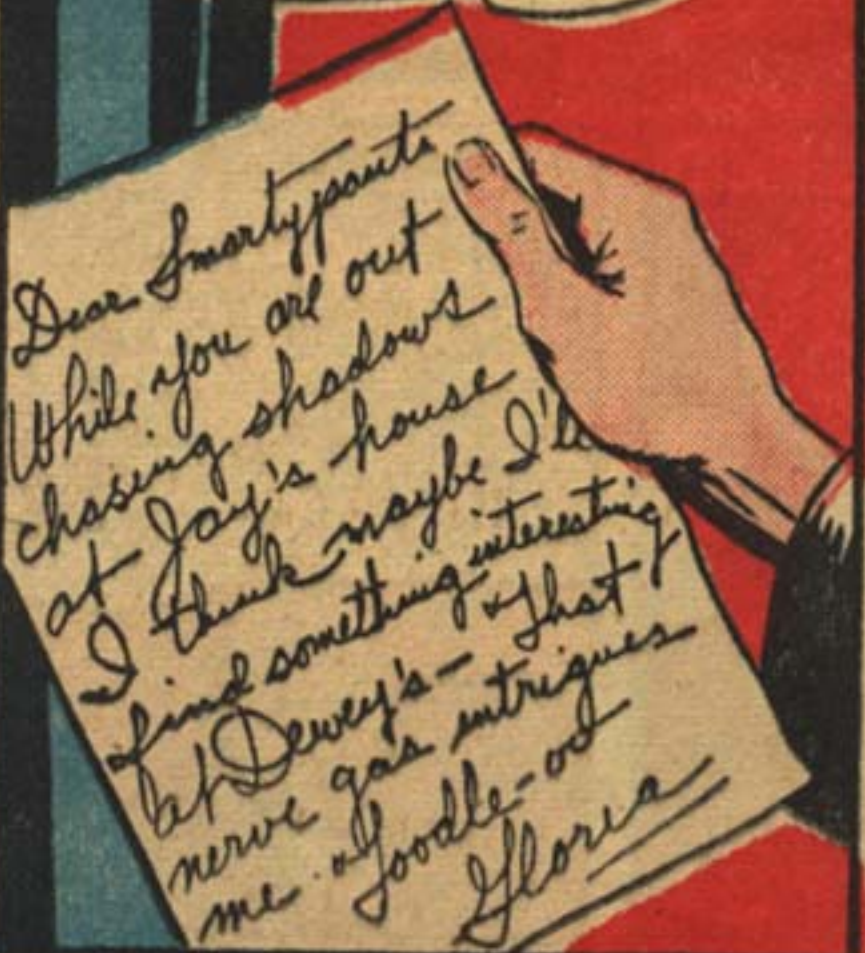 Dear Smartypants
While you are out
chasing shadows
at Jay's house
I think maybe I'll
find something interesting
at Dewey's- That
nerve gas intrigues
me. Toodle-oo
Gloria